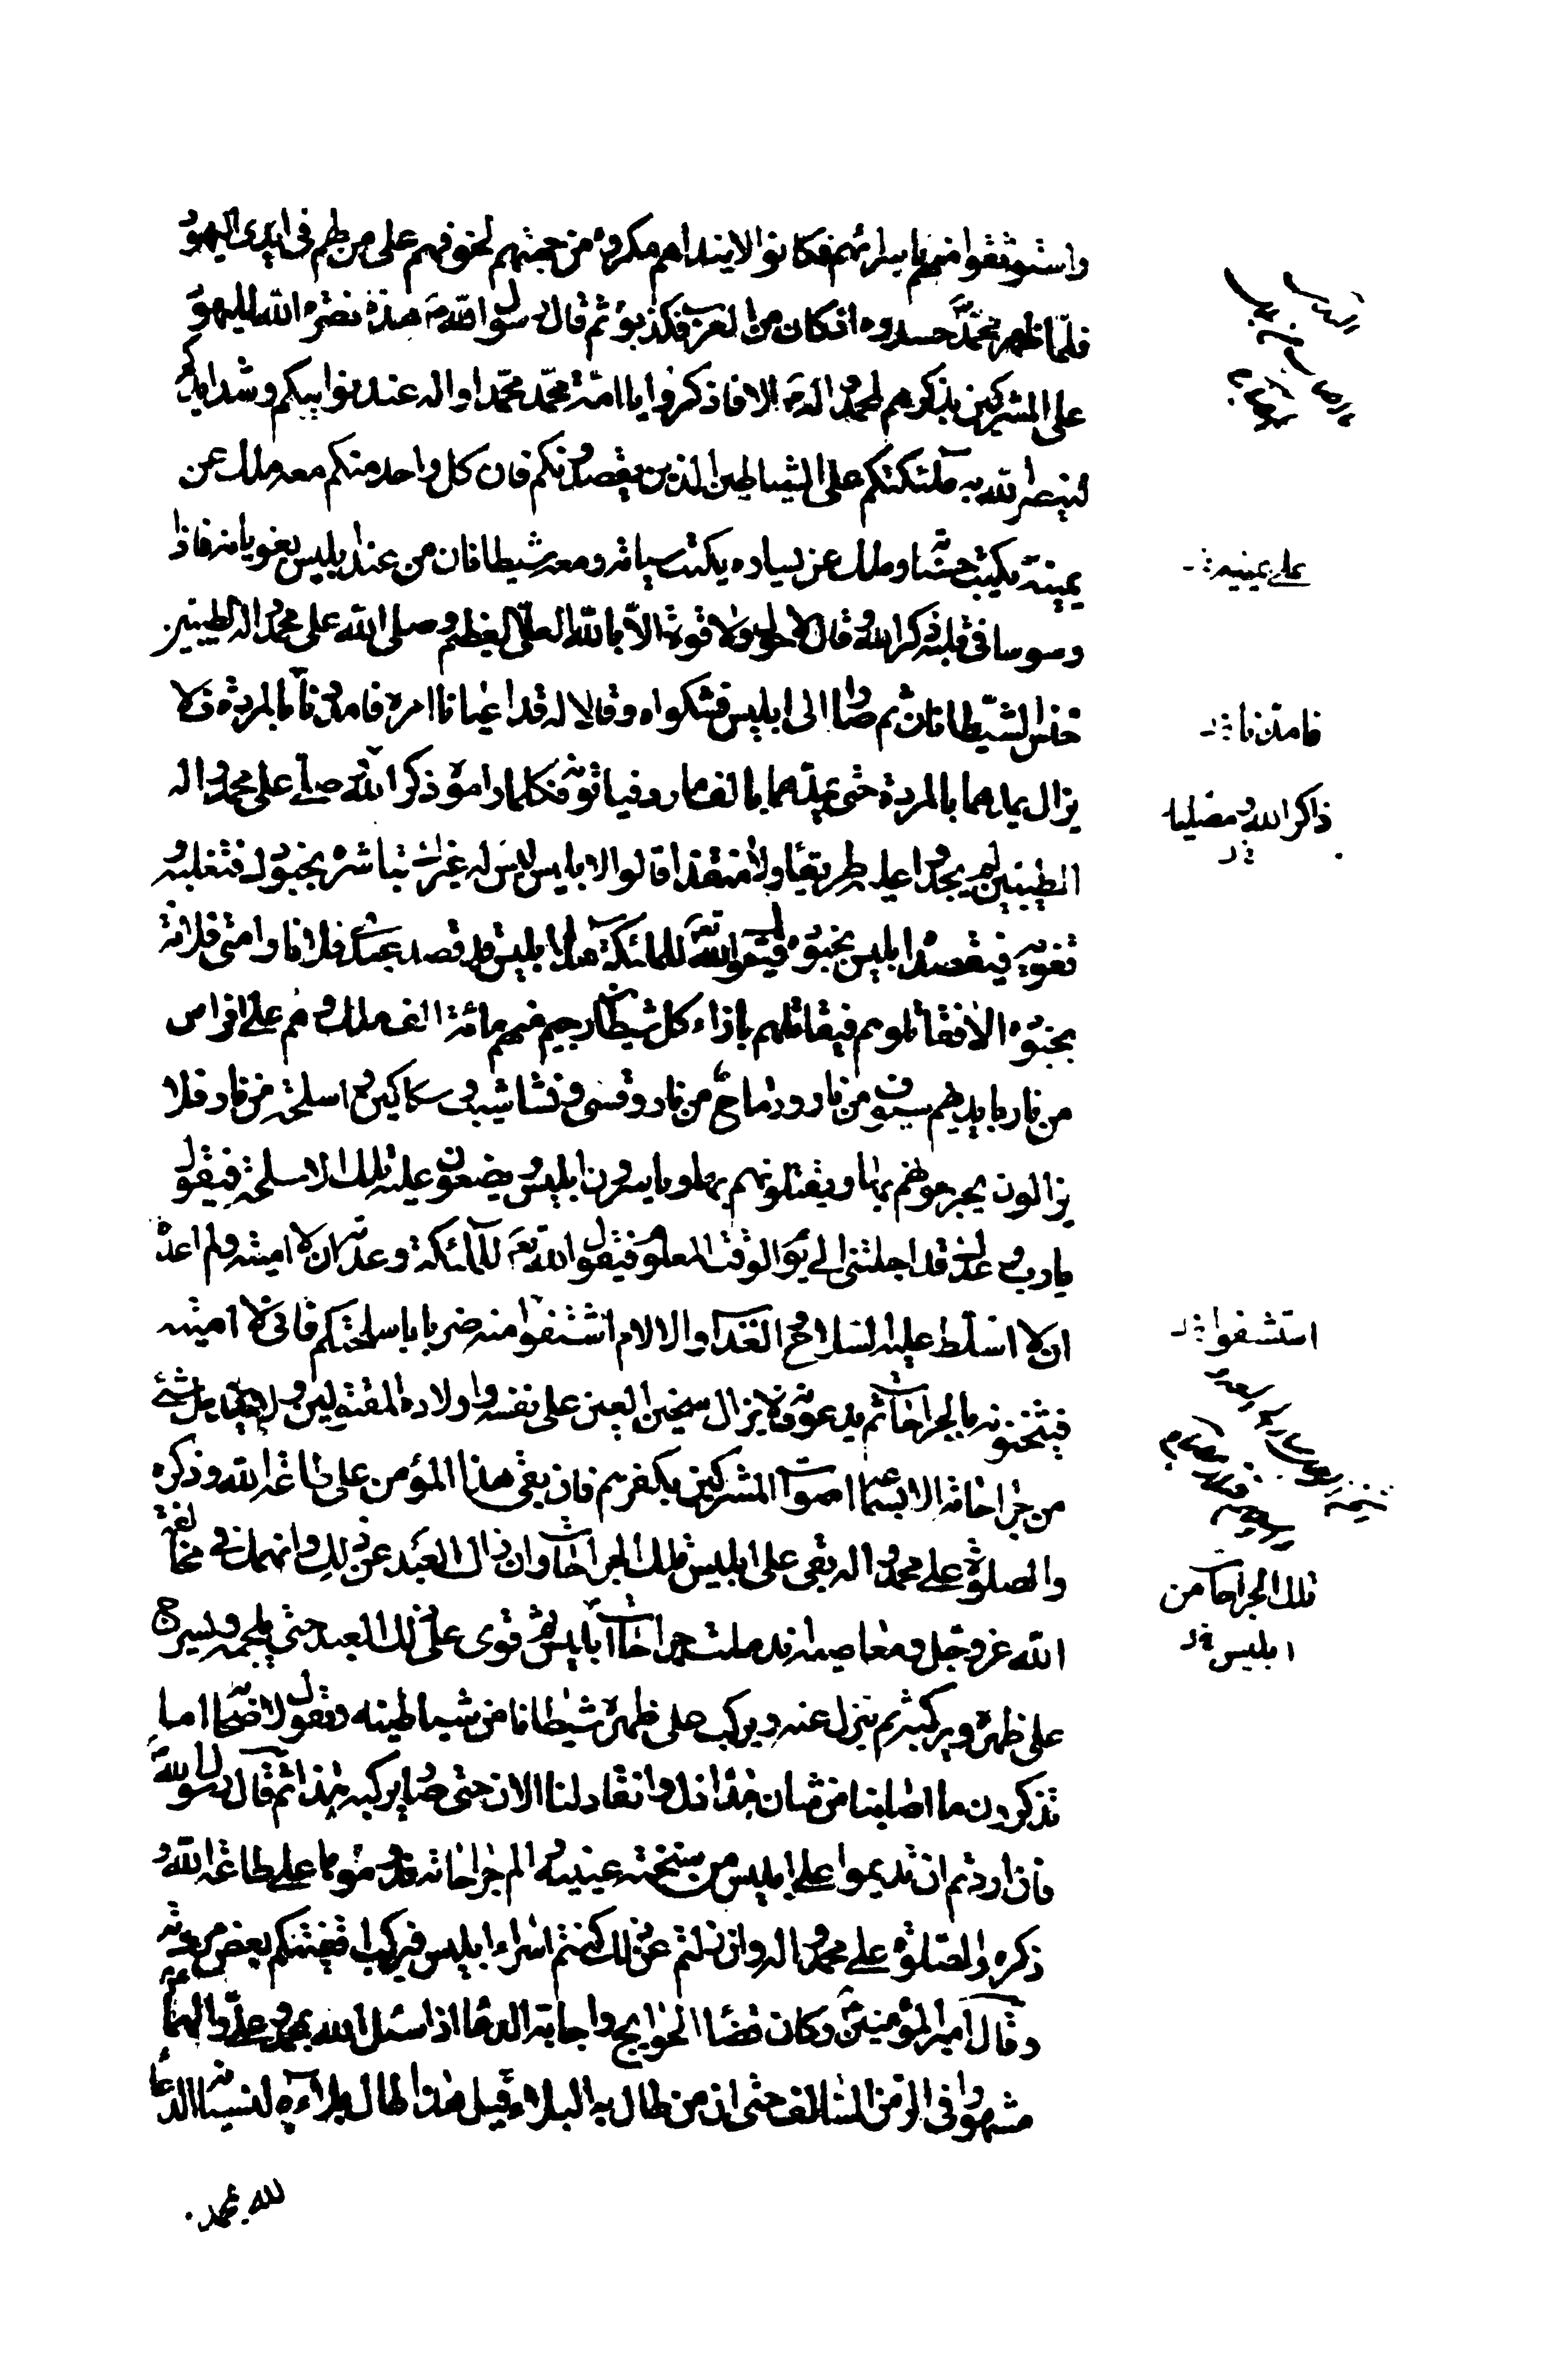 واستوثقوا منهم باسرائهم فكانوا لا ينداهم مكروه من جهتهم لخوفهم على من لهم فى ايدى اليهود
فلما ظهر محمد حسدوه اذ كان من العرب فكذبوه ثم قال رسول الله هذه نصرة الله لليهود
على المشركين بذكرهم لمحمد واله الا فاذكروا يا امة محمد محمدا واله عند نوائبكم وشدايدكم
لينصر الله به ملئكتكم على الشياطين الذين يقصدونكم فان كل واحد منكم معه ملك عن
يمينه يكتب حسناته وملك عن يساره يكتب سيئاته ومعه شيطانان من عند ابليس يغويانه فاذا
وسوسا فى قلبه ذكر الله وقال لا حول ولا قوة الا بالله العلى العظيم وصلى الله على محمد واله الطيبين
خنس الشيطانان ثم صارا الى ابليس فشكواه وقالا له قد اعيانا امره فامددنا بالمردة فلا
يزال يمدهما بالمردة حتى يمدهما بالف مارد فياتونه فكلما راموه ذكر الله وصلى على محمد واله
الطيبين لم يجدوا عليه طريقا ولا منفذا قالوا لابليس ليس له غيرك تباشره بجنودك فتغلبه و
تغويه فيقصده ابليس بجنوده فيقول الله تعالى للملائكة هذا ابليس قد قصد عبدى فلانا وامتى فلانة
بجنوده الا فقاتلوهم فيقاتلهم بازاء كل شيطان رجيم منهم مائة الف ملك وهم على افراس
من نار بايديهم سيوف من نار ورماح من نار وقسى ونشاشيب وسكاكين واسلحتهم من نار فلا
يزالون يجرحونهم بها ويقتلونهم بها وياسرون ابليس ويضعون عليه تلك الاسلحة فيقول
يا رب وعدك وعدك قد اجلتنى الى يوم الوقت المعلوم فيقول الله تعالى للملائكة وعدته ان لا اميته ولم اعده
ان لا اسلط عليه السلاح والعذاب والالام اشتفوا منه ضربا باسلحتكم فانى لا اميته
فيثخنونه بالجراحات ثم يدعونه فلا يزال سخين العين على نفسه واولاده المقتولين ولا يندمل شئ
من جراحاته الا بسماعه اصوات المشركين بكفرهم فان بقى هذا المؤمن على طاعة الله وذكره
والصلوة على محمد واله بقى على ابليس تلك الجراحات وان زال العبد عن ذلك وانهمك فى مخالفة
الله عز وجل ومعاصيه اندملت جراحات ابليس ثم قوى على ذلك العبد حتى يلجمه ويسرج
على ظهره ويركبه ثم ينزل عنه ويركب على ظهره شيطانا من شياطينه ويقول لاصحابه اما
تذكرون ما اصابنا من شان هذا ذل وانقاد لنا الان حتى صار يركبه هذا ثم قال رسول الله
فان اردتم ان تديموا على ابليس من سخنة عينيه والم جراحاته فدوموا على طاعة الله و
ذكره والصلوة على محمد واله وان زلتم عن ذلك كنتم اسراء ابليس فيركب اقفيتكم بعض مردته
وقال امير المؤمنين وكان قضاء الحوايج واجابة الدعاء اذا سئل الله بمحمد وعلى والهما
مشهورا فى الزمن السالف حتى ان من طال به البلاء قيل هذا طال بلاءه لنسيانه الدعاء
لله بمحمد
على يمينيه
فامددنا
ذاكرا لله ومصليا
استشفوا
تلك الجراحات من
ابليس